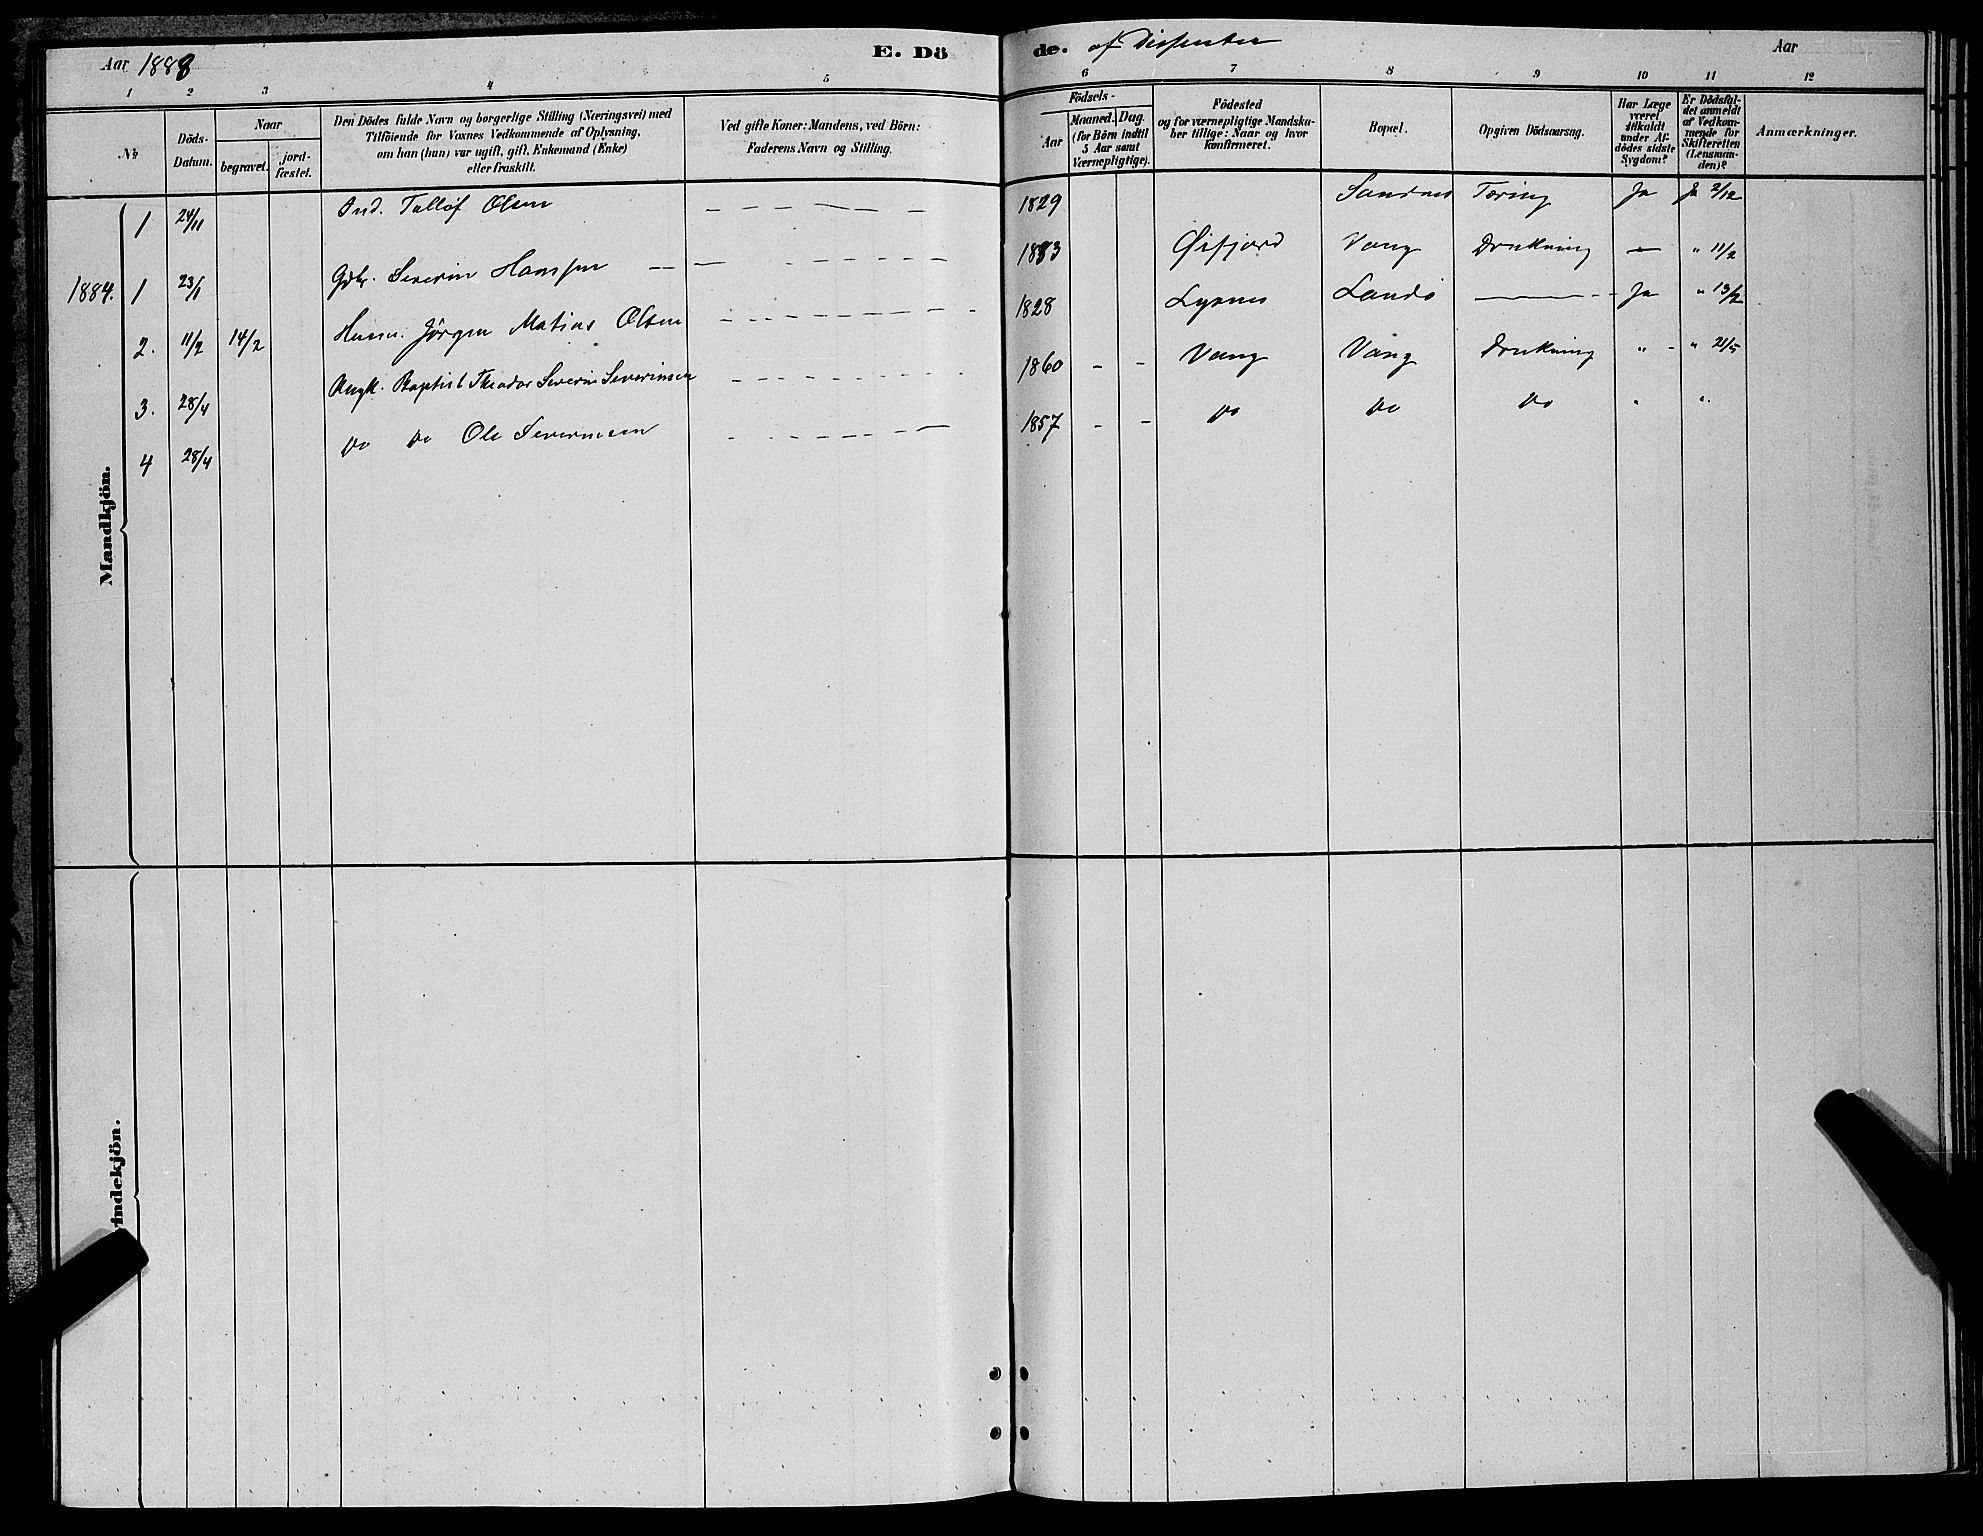 Aar 1888 E. Dö
1 2 3 4 5
No.
Döds-Datum.
Naar
begravet.
jord-fæstet.
Den Dödes fulde Navn og borgerlige Stilling (Næringsvei) med
Tilföiende for Voxnes Vedkommende af Oplysning,
om han (hun) var ugift, gift, Enkemand (Enke)
eller fraskilt.
Ved gifte Koner: Mandens, ved Börn:
Faderens Navn og Stilling.
1 24/11 Ind. Tollöf Olsen
1884. 1 23/1 Gbr. Severin Hanssen
2. 11/2 14/2 Jörgen Matias Olsen
3. 28/4 Ungk. Baptist Theodor Severin Severinsen
4 28/4 do do Ole Severinsen
Mandkjön.
vindekjön.
de. af Dissenter Aar
6 7 8 9 10 11 12
Födsels-
Aar
Maaned. Dag.
(for Börn indtil
5 Aar samt
Værnepligtige).
Födested
og for værnepligtige Mandska-
ber tillige: Naar og hvor
konfirmeret.
Bopæl.
Opgiven Dödsaarsag.
Har Læge
været
tilkaldt
under Af-
dödes sidste
Sygdom?
Er Dödsfal-
det anmeldt
af Vedkom-
mende for
Skifteretten
(Lensman-
den)?
Anmærkninger.
1829 Sandnes Tæring Ja Ja 2/12
Öifjord Vang Drukning — " 11/2
1828 Lysnes Ja " 13/2
1860 - - Vang Vang Drukning " - " 2/5
1857 - - do do do " "